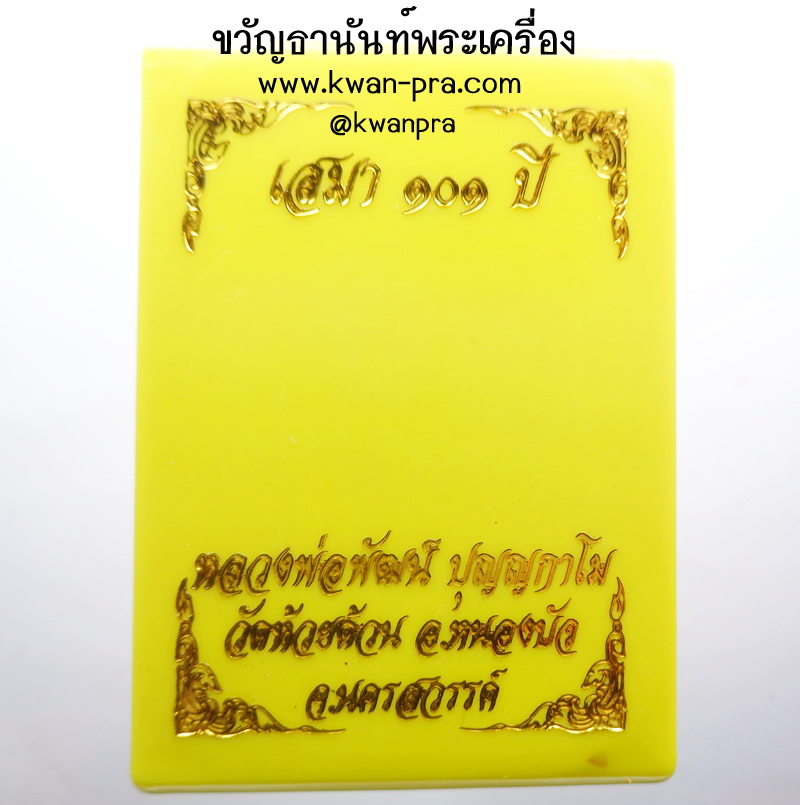 ขวัญธานันท์พระเครื่อง
www.kwan-pra.com
@kwanpra
เสมา ๑๐๑ ปี
หลวงพ่อพัฒน์ ปุญญกาโม
วัดห้วยด้วน อ.หนองบัว
จ.นครสวรรค์